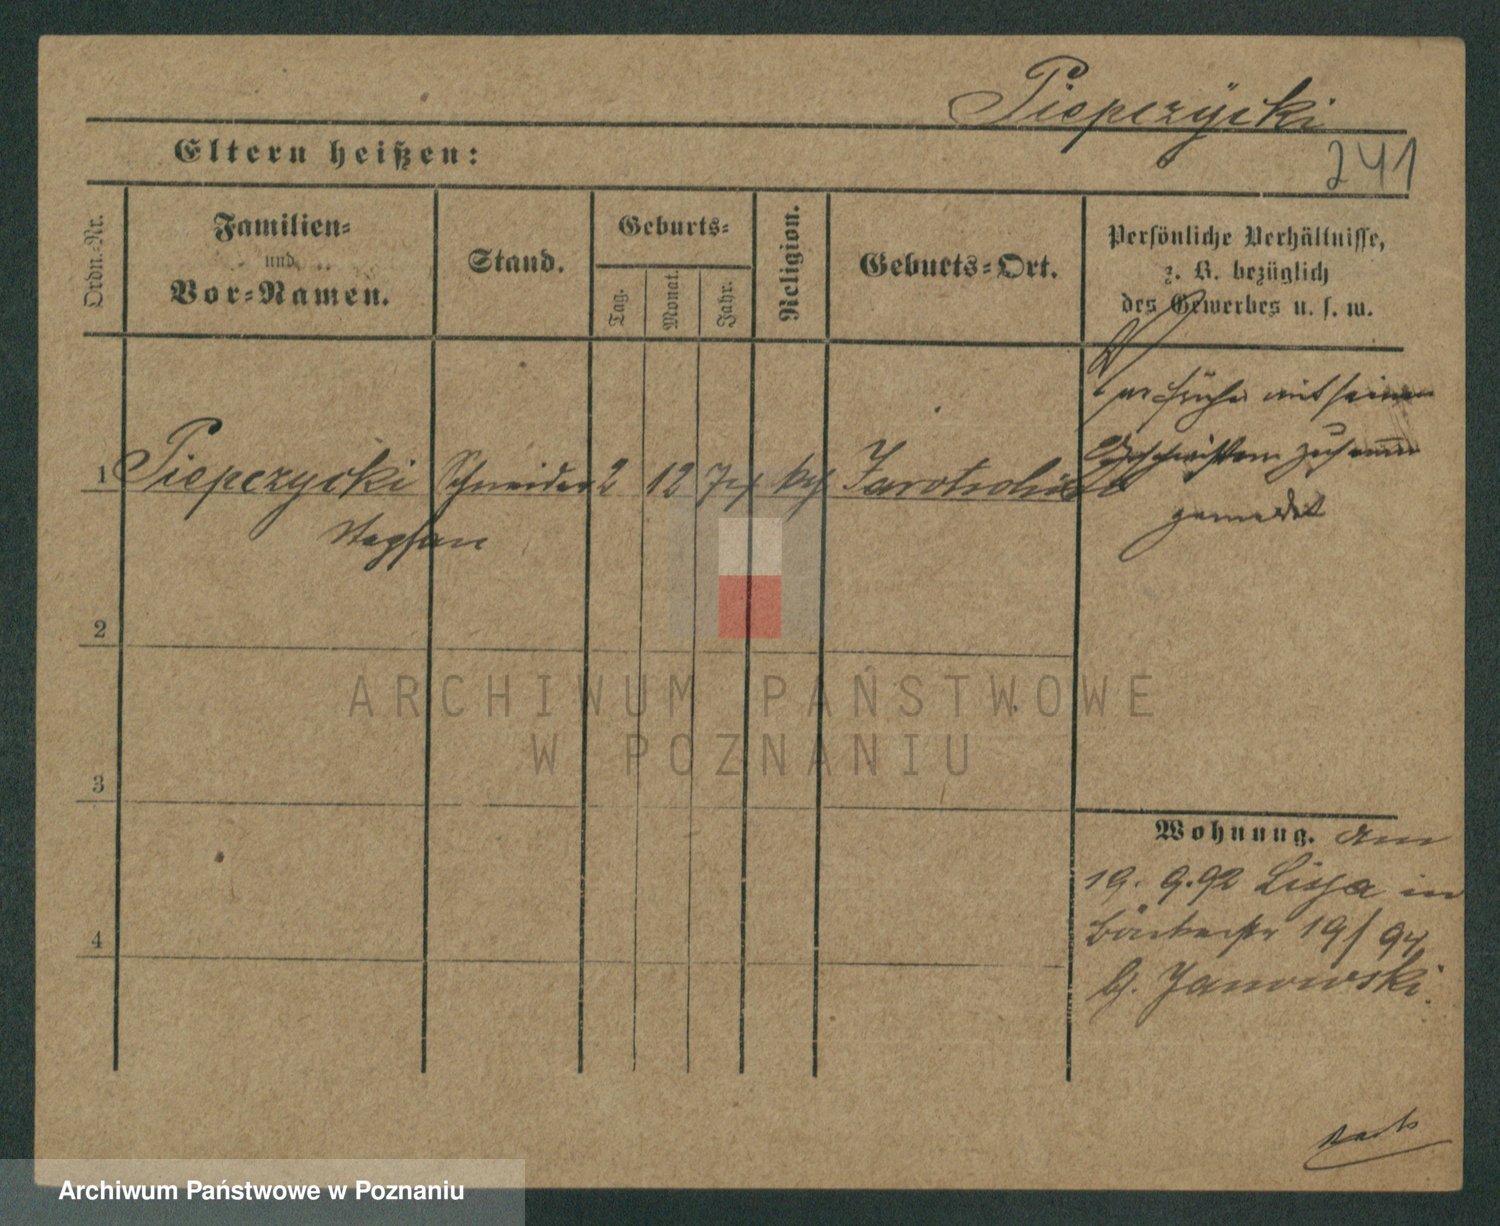 Piepczÿcki
241
Eltern heißen:
Ordn.-Nr.
Familien-
und
Vor-Namen.
Stand.
Geburts-
Tag.
Monat.
Jahr.
Religion.
Geburts-Ort.
Persönliche Verhältnisse,
z. B. bezüglich
des Gewerbes u. s. w.
War früher mit seinen
Geschwistern zusammen
gemeldet
1 Piepczycki Schneider 2 12 74 kth Jarotschin
Stephan
2
3
4
Wohnung. am
19. 9. 92 Lissa in
Bäckerstr 19/94
b/. Janowski.
ARCHIWUM PAŃSTWOWE
W POZNANIU
Archiwum Państwowe w Poznaniu